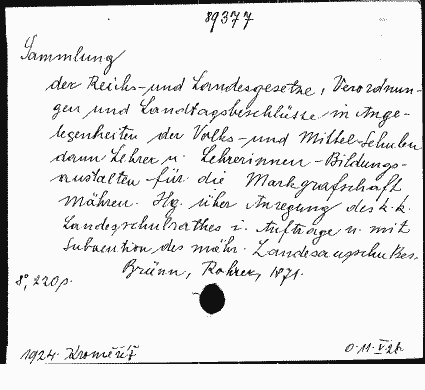 89377
Sammlung
der Reichs- und Landesgesetze, Verordnun-
gen und Landtagsbeschlüsse in Ange-
legenheiten der Volks- und Mittel-Schulen
dann Lehrer u. Lehrerinnen-Bildungs-
anstalten für die Markgrafschaft
Mähren. Hg. über Anregung des k.k.
Landesschulrathes i. Auftrage u. mit
Subvention des mähr. Landesausschußes.
Brünn, Rohrer, 1871.
8°, 220 p.
1924. Kroměříž